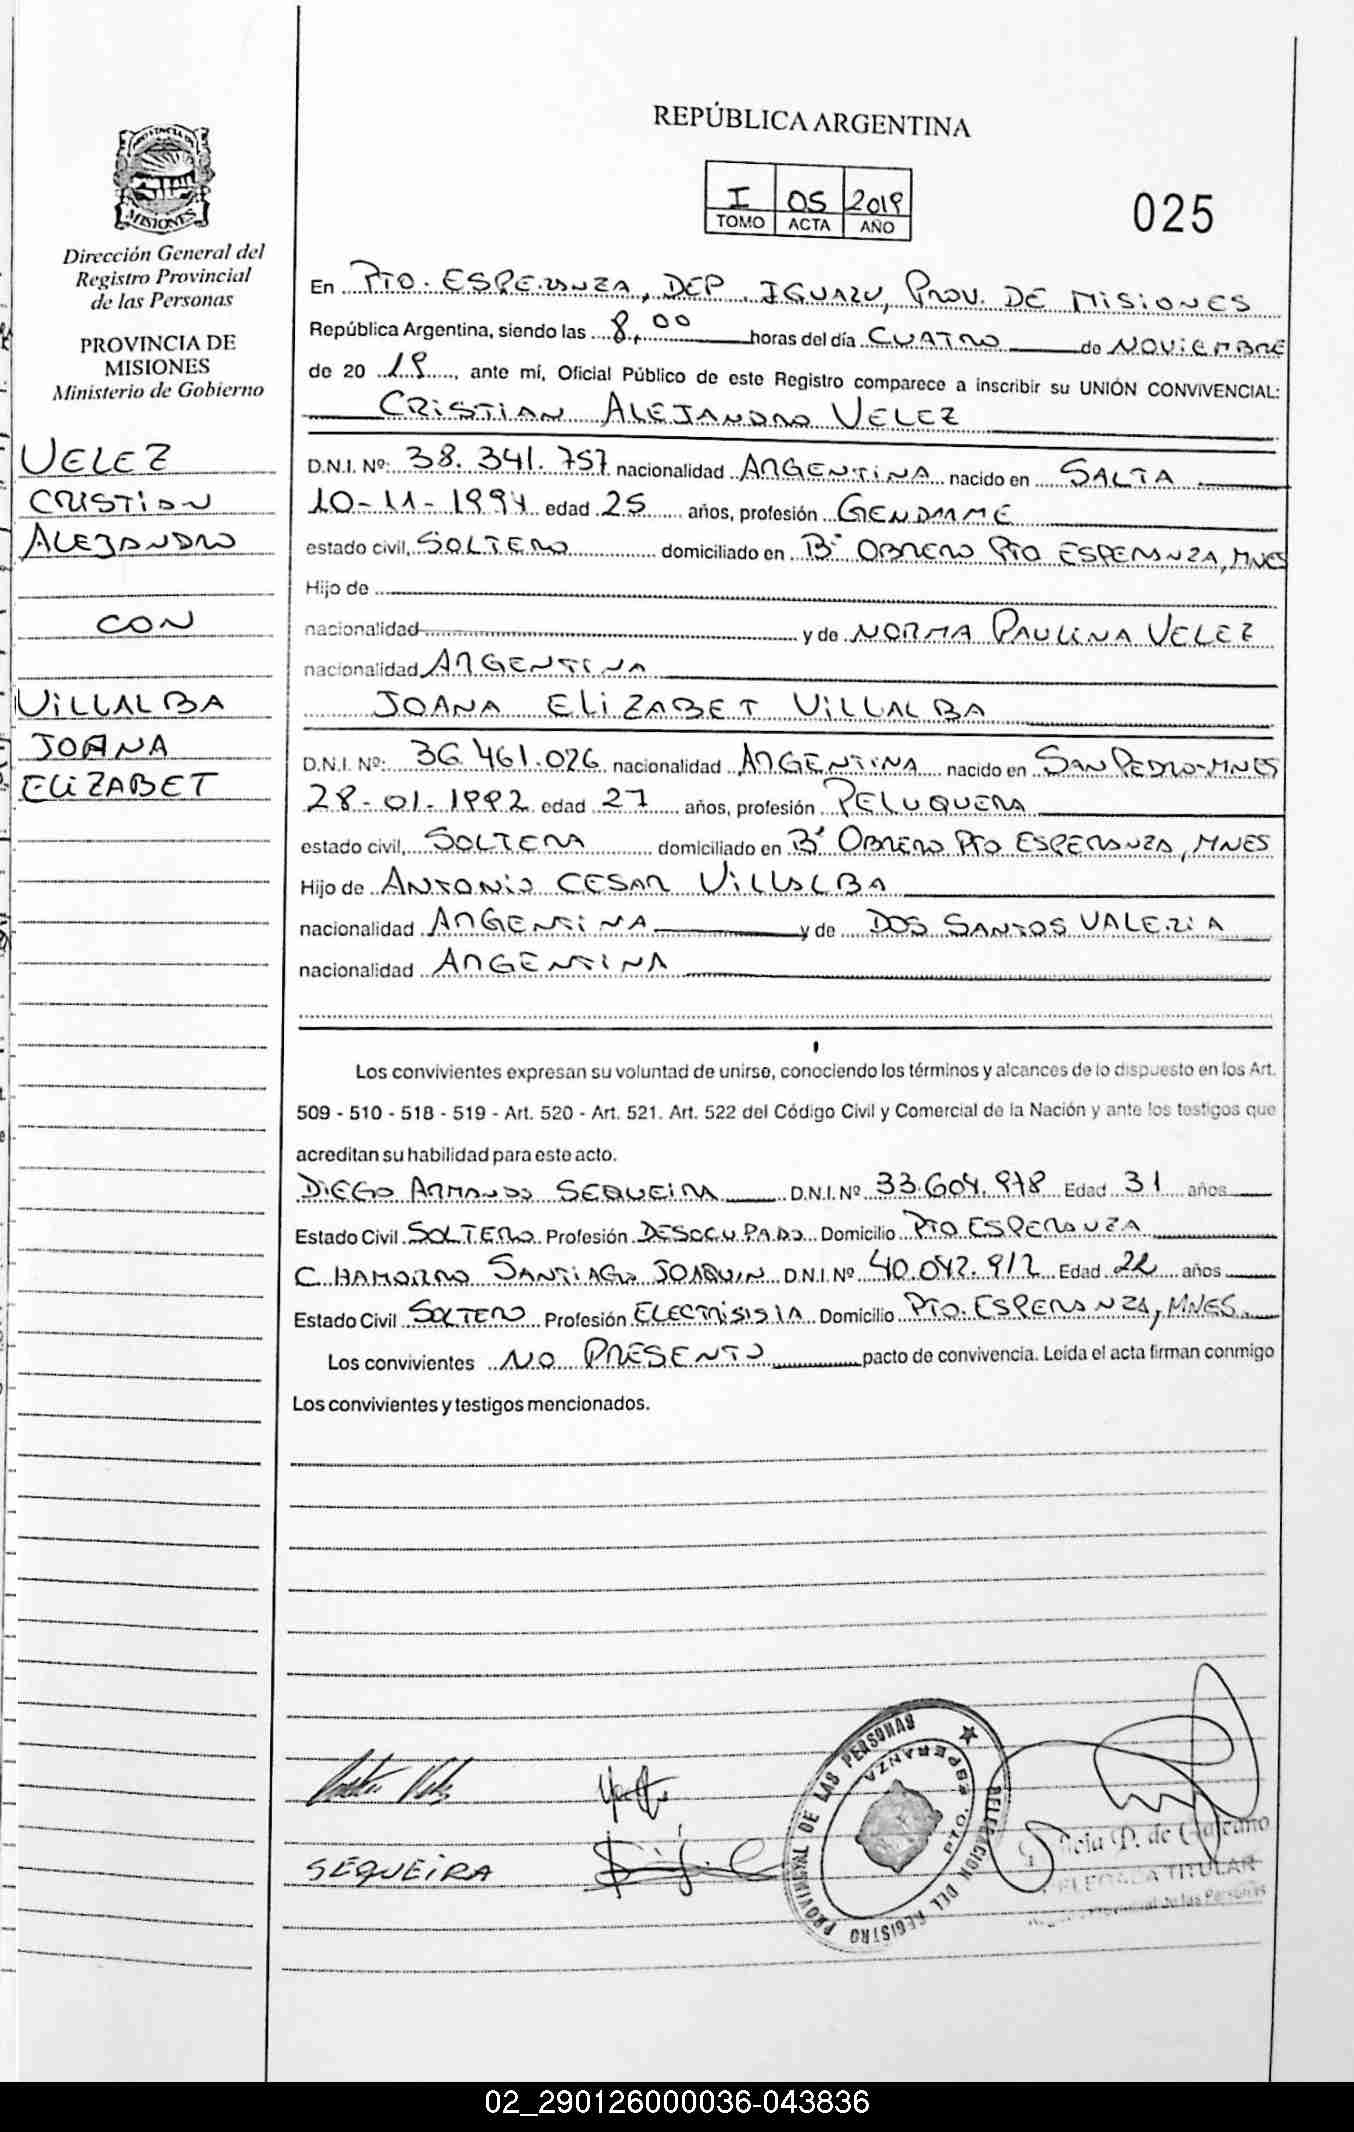 PROVINCIA DE
MISIONES
Dirección General del
Registro Provincial
de las Personas
PROVINCIA DE
MISIONES
Ministerio de Gobierno
VELEZ
CRISTIAN
ALEJANDRO
CON
VILLALBA
JOANA
ELIZABET
REPÚBLICA ARGENTINA
I 05 2019
TOMO ACTA AÑO
025
En PTO. ESPERANZA, DEP. IGUAZU, PROV. DE MISIONES
República Argentina, siendo las 8,00 horas del día CUATRO de NOVIEMBRE
de 20 19, ante mí, Oficial Público de este Registro comparece a inscribir su UNIÓN CONVIVENCIAL:
CRISTIAN ALEJANDRO VELEZ
D.N.I. Nº: 38.341.757 nacionalidad ARGENTINA nacido en SALTA
10-11-1994 edad 25 años, profesión GENDARME
estado civil, SOLTERO domiciliado en Bº OBRERO PTO ESPERANZA, MNES
Hijo de
nacionalidad y de NORMA PAULINA VELEZ
nacionalidad ARGENTINA
JOANA ELIZABET VILLALBA
D.N.I. Nº: 36.461.026 nacionalidad ARGENTINA nacido en SAN PEDRO-MNES
28-01-1992 edad 27 años, profesión PELUQUERA
estado civil, SOLTERA domiciliado en Bº OBRERO PTO ESPERANZA, MNES
Hijo de ANTONIO CESAR VILLALBA
nacionalidad ARGENTINA y de DOS SANTOS VALERIA
nacionalidad ARGENTINA
Los convivientes expresan su voluntad de unirse, conociendo los términos y alcances de lo dispuesto en los Art.
509 - 510 - 518 - 519 - Art. 520 - Art. 521. Art. 522 del Código Civil y Comercial de la Nación y ante los testigos que
acreditan su habilidad para este acto.
DIEGO ARMANDO SEQUEIRA D.N.I. Nº 33.604.978 Edad 31 años
Estado Civil SOLTERO Profesión DESOCUPADO Domicilio PTO ESPERANZA
CHAMORRO SANTIAGO JOAQUIN D.N.I. Nº 40.042.912 Edad 22 años
Estado Civil SOLTERO Profesión ELECTRISISTA Domicilio PTO. ESPERANZA, MNES.
Los convivientes NO PRESENTO pacto de convivencia. Leída el acta firman conmigo
Los convivientes y testigos mencionados.
SEQUEIRA
DELEGACION DEL REGISTRO PROVINCIAL DE LAS PERSONAS
PTO. ESPERANZA
P. de
DELEGADA TITULAR
Registro Provincial de las Personas
02_290126000036-043836